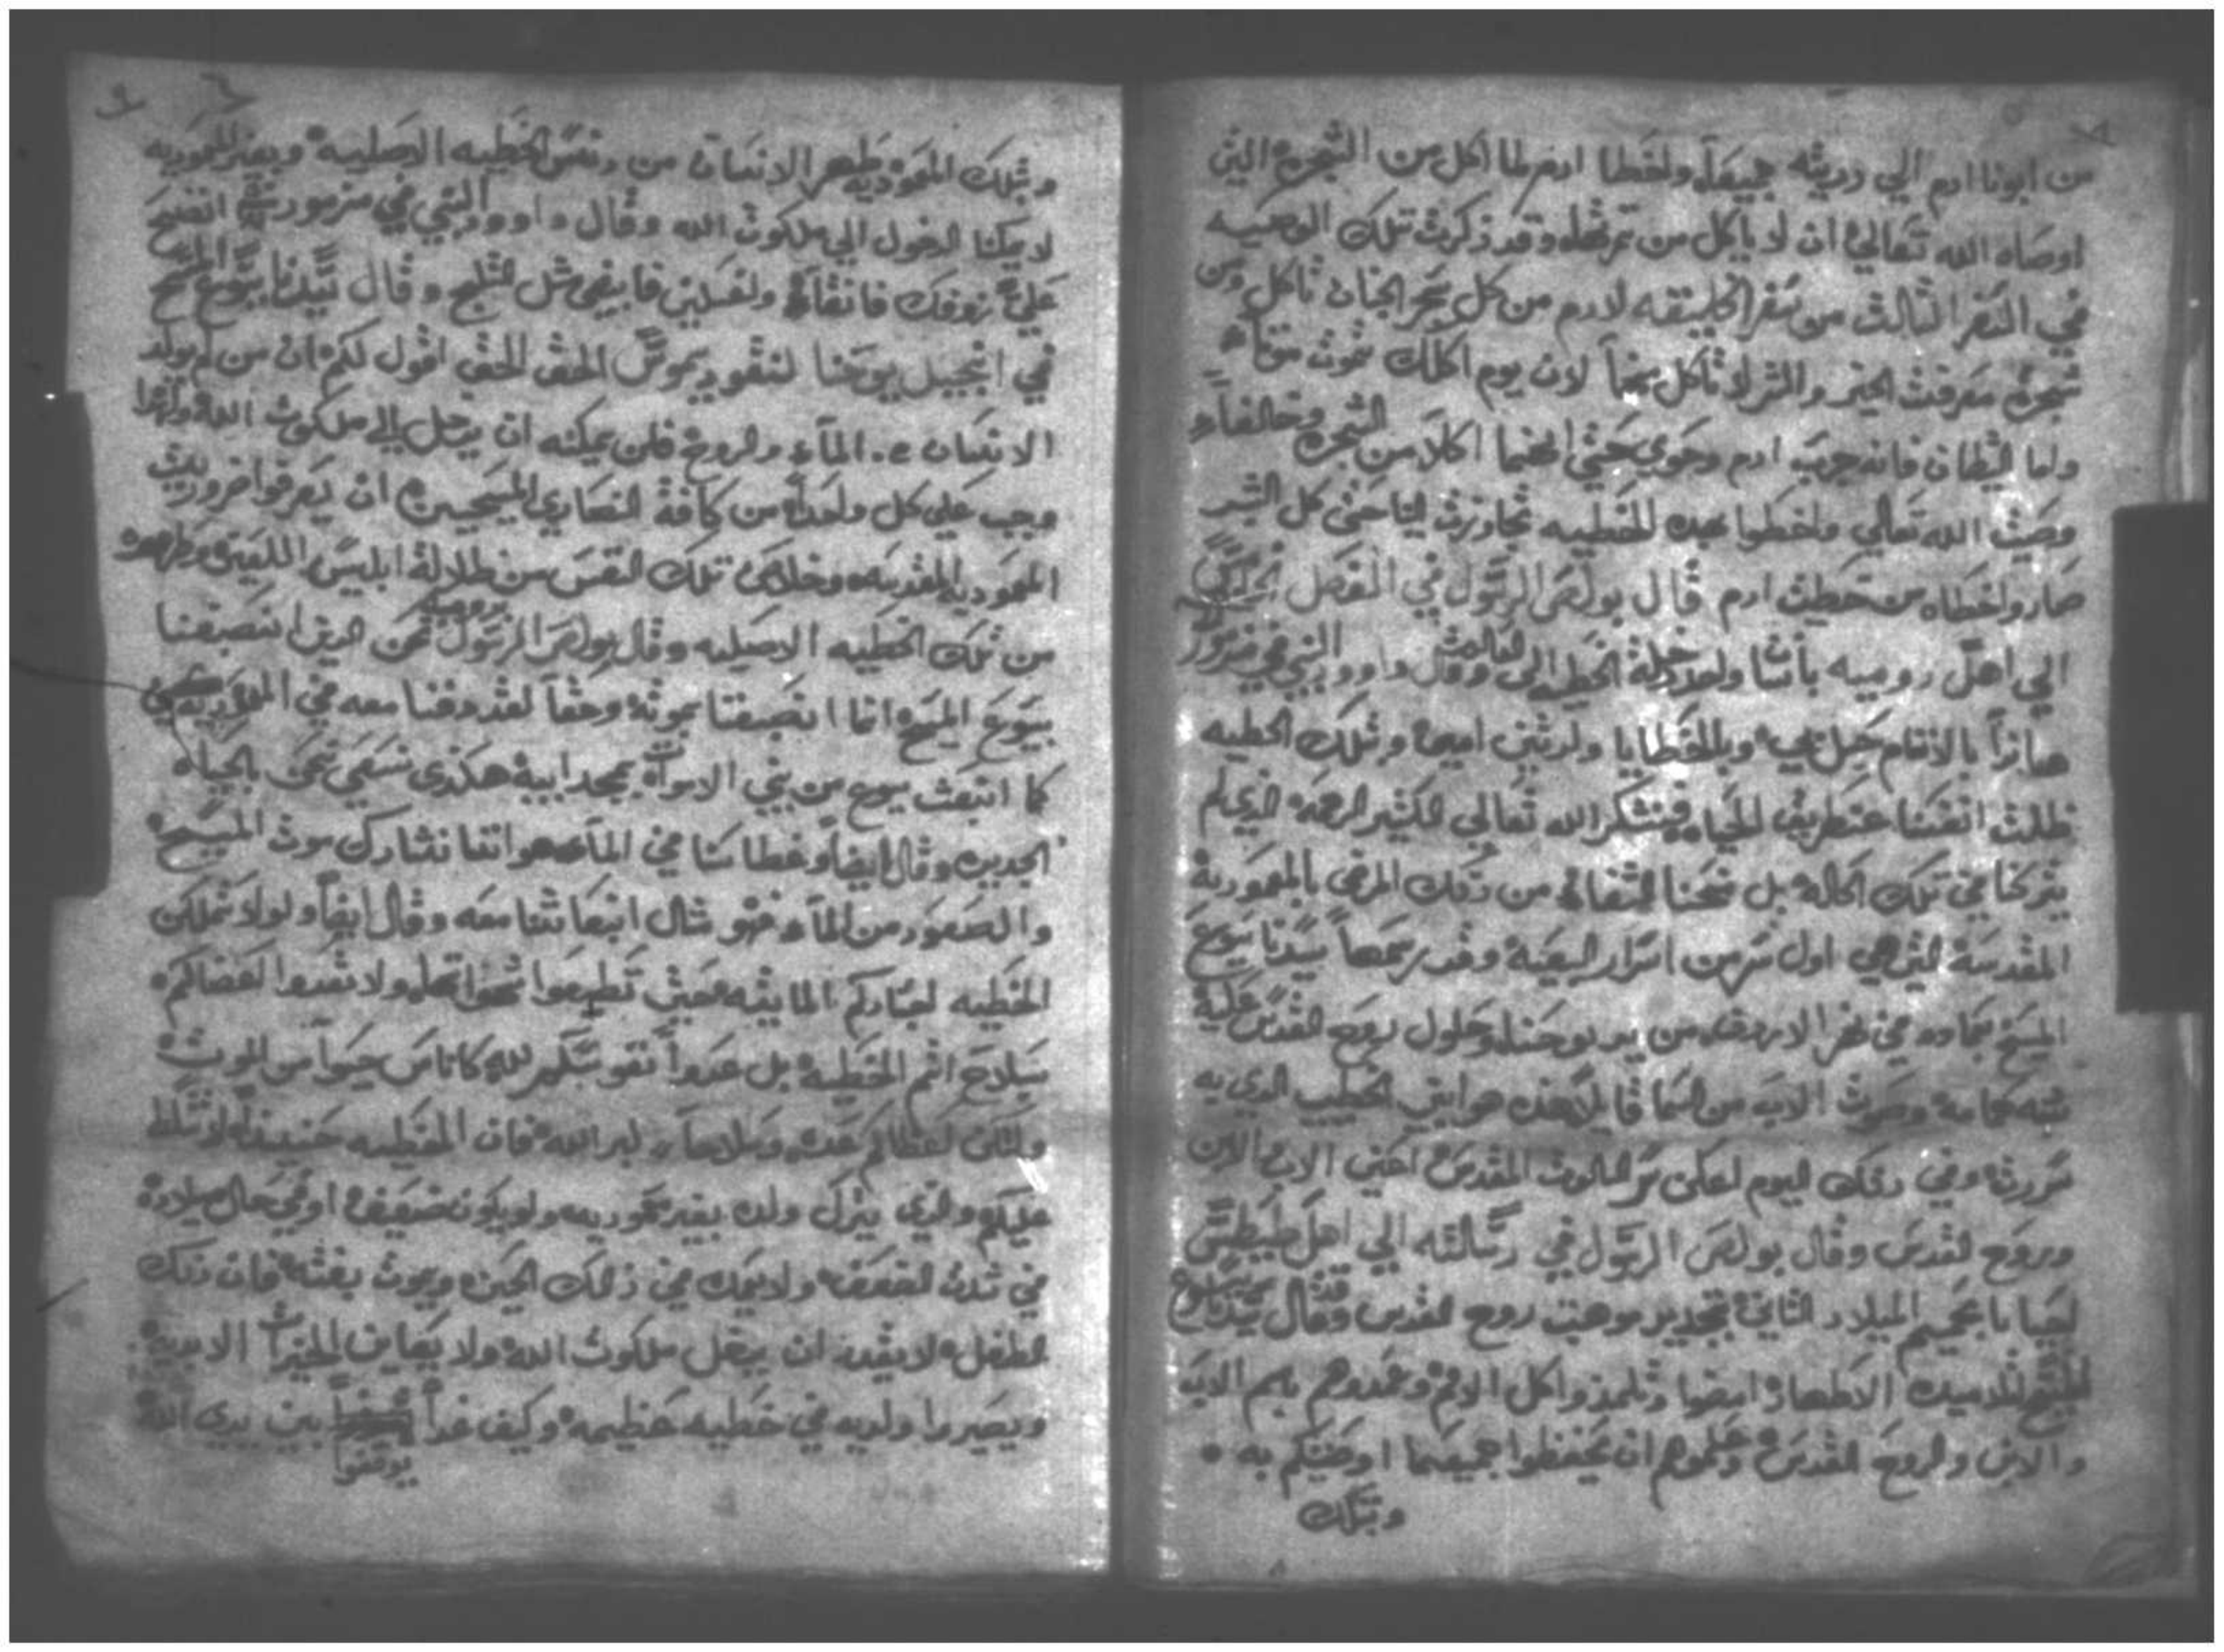 من ابونا ادم الي دريته جميعاً واخطا ادم لما اكل من الشجره التي
اوصاه الله تعالي ان لا ياكل من وقد ذكرت تلك الوصيه
في السفر الثالث من سفر الخليقه لادم من كل شجر الجنان تاكل ومن
شجرة معرفت الخير والشر لا تاكل لان يوم اكلك تموت موتاً
واما الشطان فانه جرب ادم وحوي حتي انهما اكلا من الشجره وخالفا
وصيت الله تعالي واخطوا بهده الخطيه كل البشر
صارو اخطاه من خطيت ادم قال بولص الرسول في الفصل
الي اهل روميه دخلة الخطيه الي وقال داوود النبي في مزمور
هانداً بالاتام حبل بي وبالخطايا ولدتني امي وتلك الخطيه
ظلت انفسنا عن طريق الحياه فنشكر الله تعالي الكثير الرحمه الدي لم
يتركنا في تلك الحاله بل منحنا الشفا من دلك المرض بالمعمودية
المقدسة التي هي اول سر من اسرار البيعة وقد رسمها سيدنا يسوع
المسيح بعماده في نهر الاردن من يد يوحنا وحلول روح القدس علية
شبه حمامة وصوت الاب من السما قايلا هدا هو ابني الحبيب الدي به
سررت وفي دلك اليوم سر التالوت المقدس اعني الاب والابن
وروح القدس وقال بولص الرسول في رسالته الي اهل طيطس
احيانا بحميم الميلاد التاني بتجديد موهبت روح القدس وقال سيدنا يسوع
المسيح لتلاميده الاطهار ايضا وتلمدوا كل الامم وعمدوهم باسم الاب
والابن والروح القدس وعلموهم ان يحفظوا جميعما اوصيتكم به
وبتلك
وبتلك المعموديه طهر الانسان من دنس الخطيه الاصليه وبغير المعموديه
لا يمكنا الدخول الي ملكوت الله وقال داوود النبي في مزمور انضح
علي زوفك فانقا واغسلني فابيض مثل الثلج وقال سيدنا يسوع المسيح
في انجيل يوحنا لنقوديموس الحق الحق اقول لكم ان من لم يولد
الانسان من الماء والروح فلن يمكنه ان يدخل الي ملكوت الله
وجب علي كل واحداً من كافة النصاري المسيحيين ان يعرفوا ضروريت
المعموديه المقدسه وخلاص تلك النفس من ظلالة ابليس اللعين
من تلك الخطيه الاصليه وقال بولص الرسول نحن الدين انصبغنا
بيسوع المسيح انما انصبغنا بموته وحقاً لقد دفنا معه في المعموديه
كما انبعث يسوع من بين الاموات بمجد ابية هكدى نسعي نحن بالحياه
الجديده وقال ايضاً وغطاسنا في الماء هو اننا نشارك موت المسيح
والصعود من الماء فهو متال انبعاتنا معه وقال ايضاً ولا تملكن
الخطيه اجسادكم المايته حتي تطيعوا شهواتها ولا تعدوا اعضاكم
سلاح اتم الخطيه بل عدوا نفوسكم لله كاناس حيوا من الموت
ولتكن اعضاكم عده وسلاحاً لبر الله فان الخطيه حنيد لا تسلط
عليكم والدي يترك ولده بغير معموديه ولو يكون ضعيف او في حال ميلاده
في الضعف ولا يعمد في ذلك الحين ويموت بغته فان دلك
الطفل لا يقدر ان يدخل ملكوت الله ولا يعاين الخيرات الابدية
ويصير والديه في خطيه عظيمة وكيف غداً يوقفوا بين يدي الله